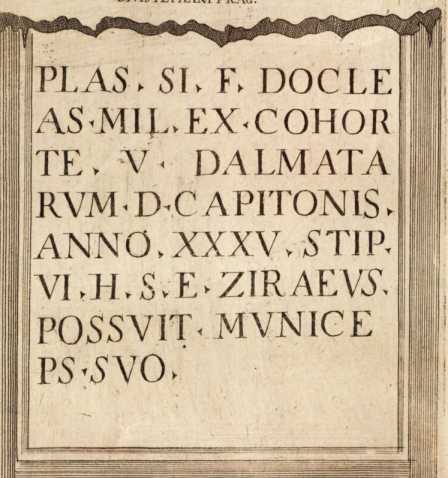 DIVI STEPHANI PRAG.
PLAS, SI, F, DOCLE
AS·MIL, EX·COHOR
TE, V · DALMATA
RVM·D·CAPITONIS,
ANNO, XXXV, STIP.
VI, H, S, E, ZIRAEVS.
POSSVIT· MVNICE
PS·SVO,